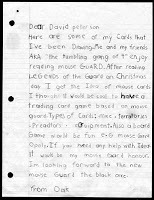 Dear David peterson
Here are some of my Cards that
I've been Drawing. Me and my friends
AKA "the rambling gang of 4" enjoy
reading mouse GuARD. After reading
LEGENDS of the Guard on Christmas
Day I got the idea of mouse cards
I thought it would be cool to have a
trading card game based on mouse
guard. Types of cards: mice, territories
Predators, equipment. Also a board
Game would be fun e.g. mouse mono
opoly. If you need any help with ideas
it would be my mouse Guard honour.
Im looking forward to the new
mouse Guard the black axe.
from Oak